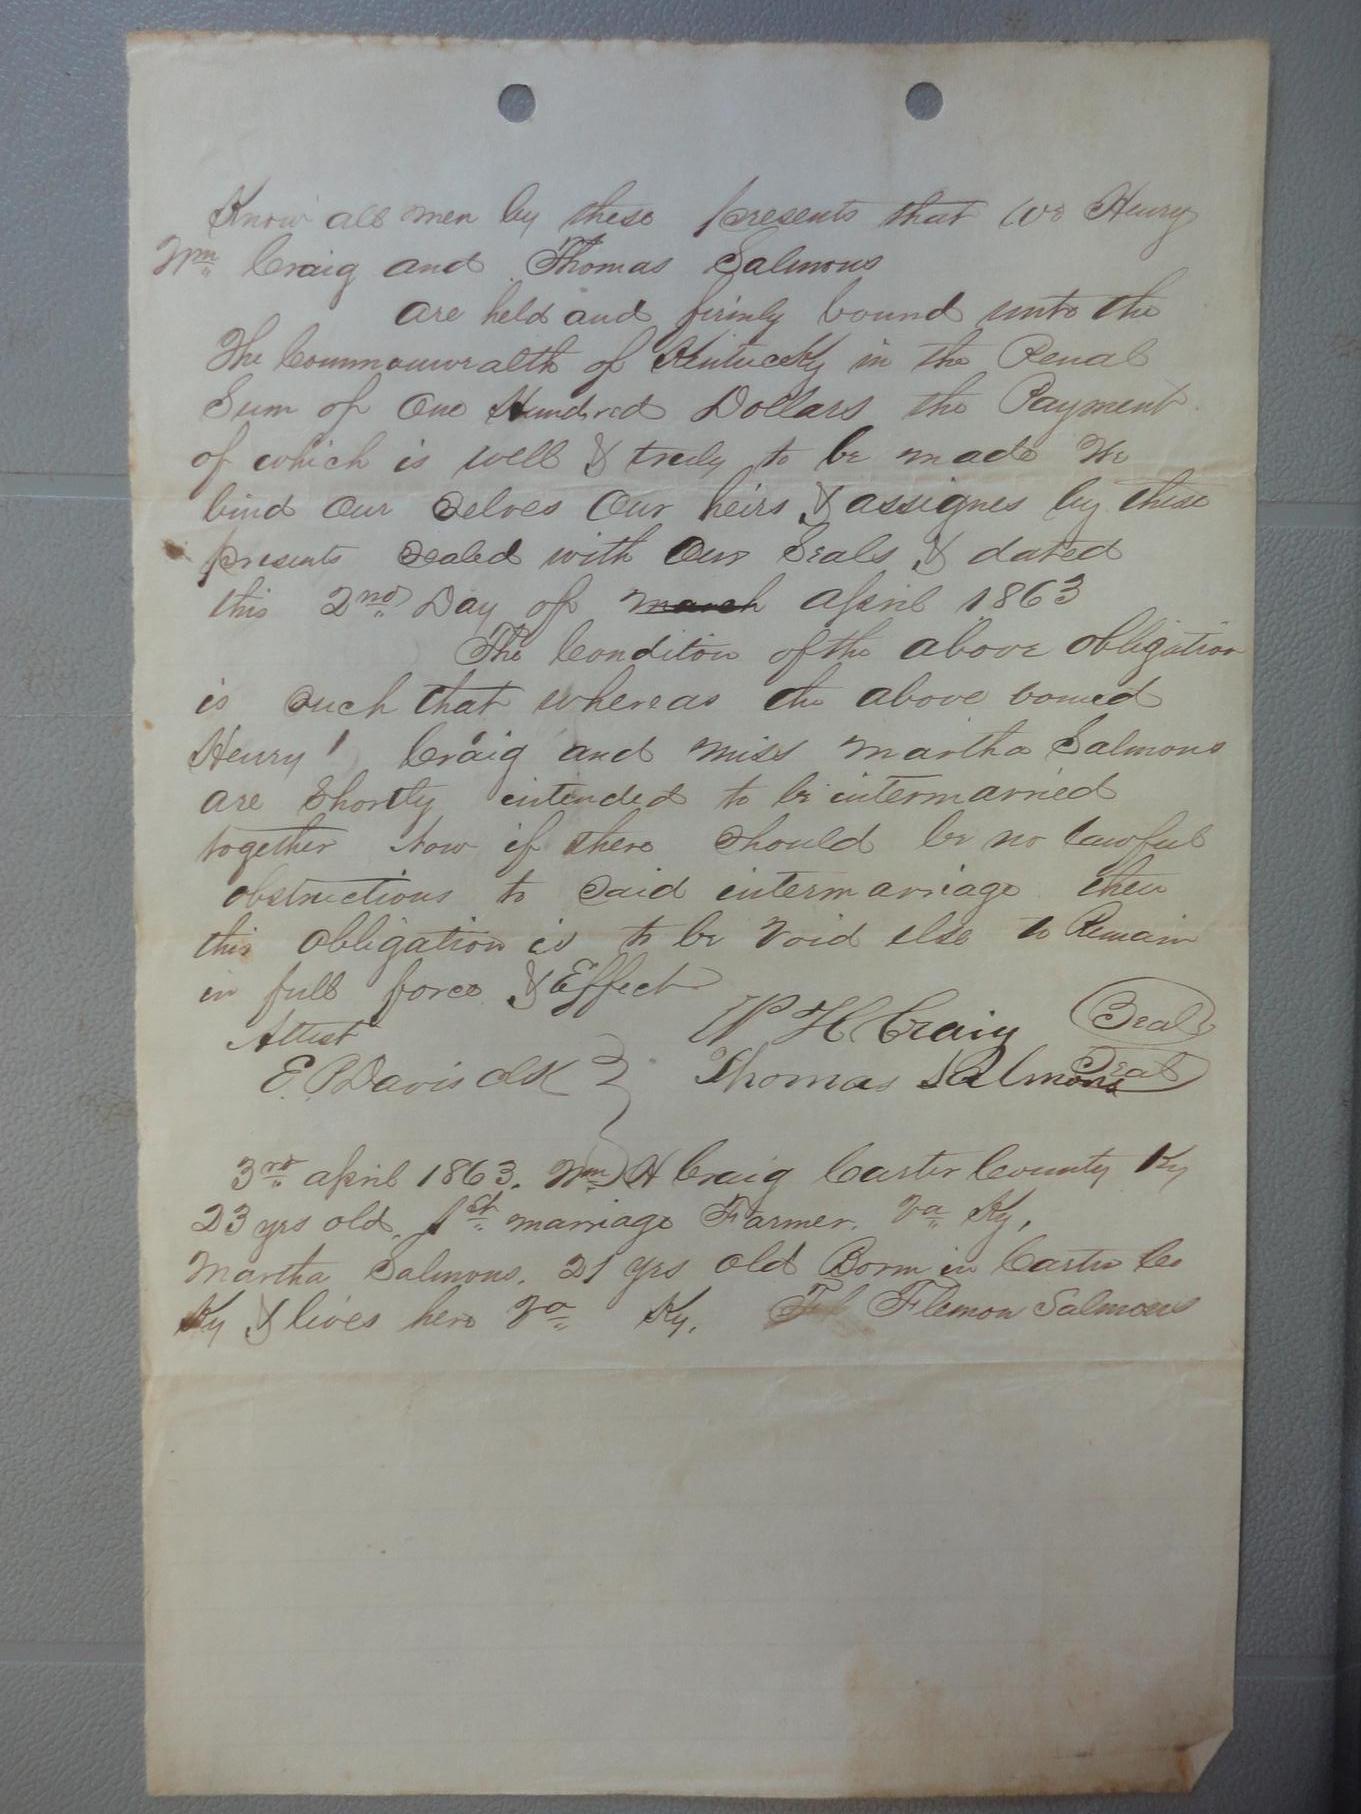 Know all men by these presents that We Henry
Wm Craig and Thomas Salmons
are held and firmly bound unto the
The Commonwealth of Kentucky in the Penal
Sum of One Hundred Dollars the Payment
of which is well & truly to be made We
bind Our Selves Our heirs & assignes by these
presents Sealed with Our Seals & dated
this 2nd Day of march april 1863
The Conditon of the above obligation
is Such that whereas the above boned
Henry Craig and Miss Martha Salmons
are Shortly intended to be intermarried
together Now if there Should be no lawful
obstructions to Said intermarriage then
this obligation is to be Void else to Remain
in full force & Effect
Attest W H Craig Seal
E. P Davis clk Thomas Salmons Seal
3rd april 1863. Wm H Craig Carter County Ky
23 yrs old. 1st marriage Farmer. Va Ky,
Martha Salmons. 21 yrs old Born in Carter Co
Ky & lives here Va Ky. Flemon Salmons